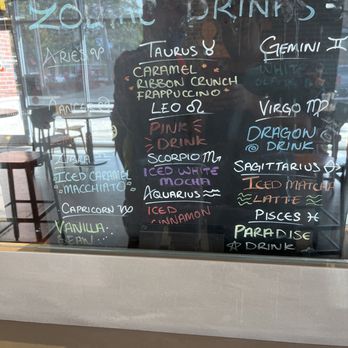 ZODIAC DRINKS
ARIES ♈
TAURUS ♉
CARAMEL
RIBBON CRUNCH
FRAPPUCCINO
GEMINI ♊
WHITE
CANCER
LEO ♌
PINK
DRINK
VIRGO ♍
DRAGON
DRINK
LIBRA
ICED CARAMEL
"MACCHIATO"
SCORPIO ♏
ICED WHITE
MOCHA
SAGITTARIUS
ICED MATCHA
LATTE
CAPRICORN ♑
VANILLA
BEAN
AQUARIUS ♒
ICED
CINNAMON
PISCES ♓
PARADISE
☆ DRINK